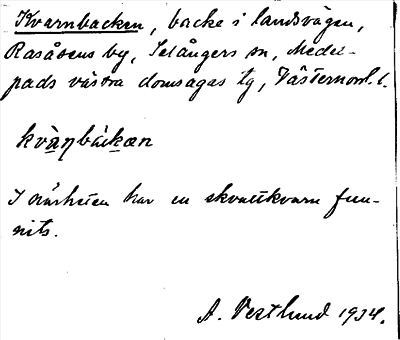 Kvarnbacken, backe i landsvägen,
Rasåsens by, Selångers sn, Medel-
pads västra domsagas tg, Västernorrl. l.
kvàṇbàkæn
I närheten har en skvattkvarn fun-
nits.
A. Vestlund 1934.